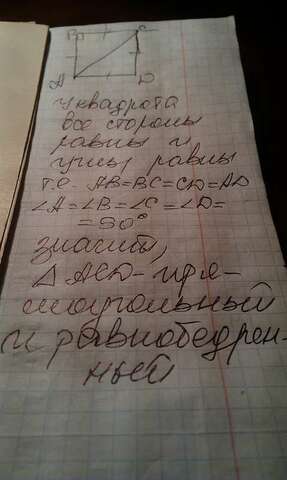 B C
A D
У квадрата
все стороны
равны и
углы равны
т.е. AB=BC=CD=AD
∠A=∠B=∠C=∠D=
=90°
значит,
△ACD - пря-
моугольный
и равнобедрен-
ный